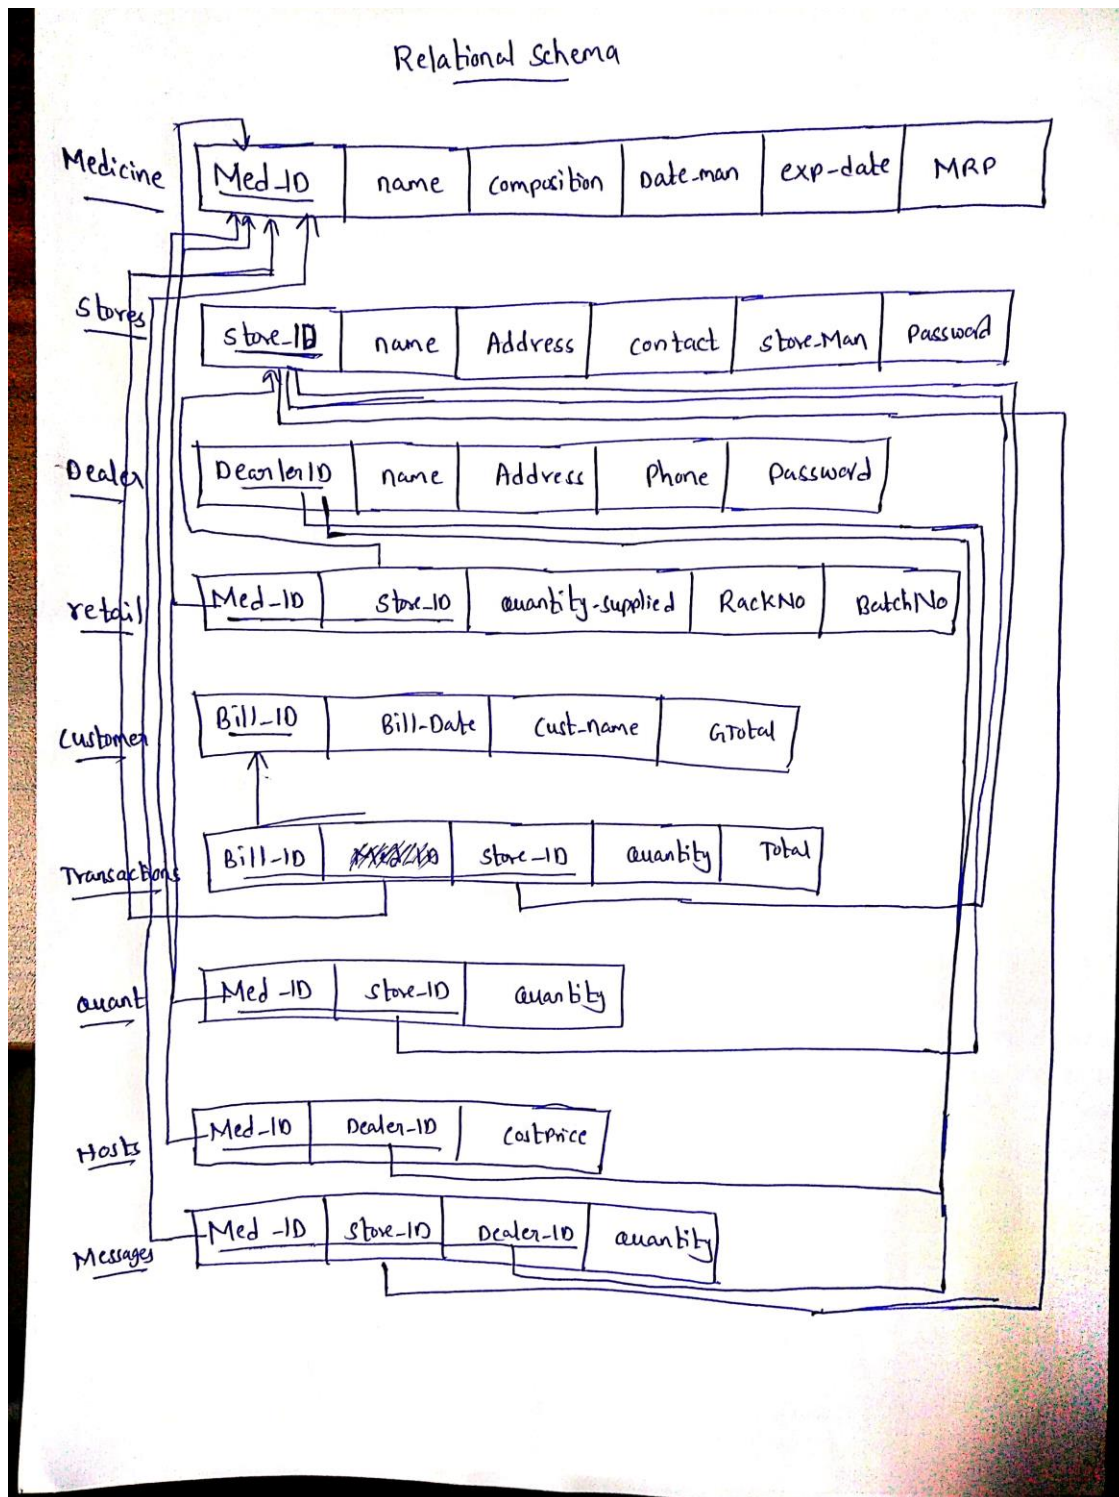 Relational Schema
Medicine Med_ID name Composition Date-man exp-date MRP
Stores Store_ID name Address contact Store-Man Password
Dealer DearlerID name Address Phone Password
retail Med_ID Store_ID Quantity-supplied RackNo BatchNo
Customer Bill_ID Bill-Date Cust-name GTotal
Transactions Bill-ID Store_ID Quantity Total
Quant Med_ID Store_ID Quantity
Hosts Med_ID Dealer_ID CostPrice
Messages Med_ID Store_ID Dealer_ID Quantity